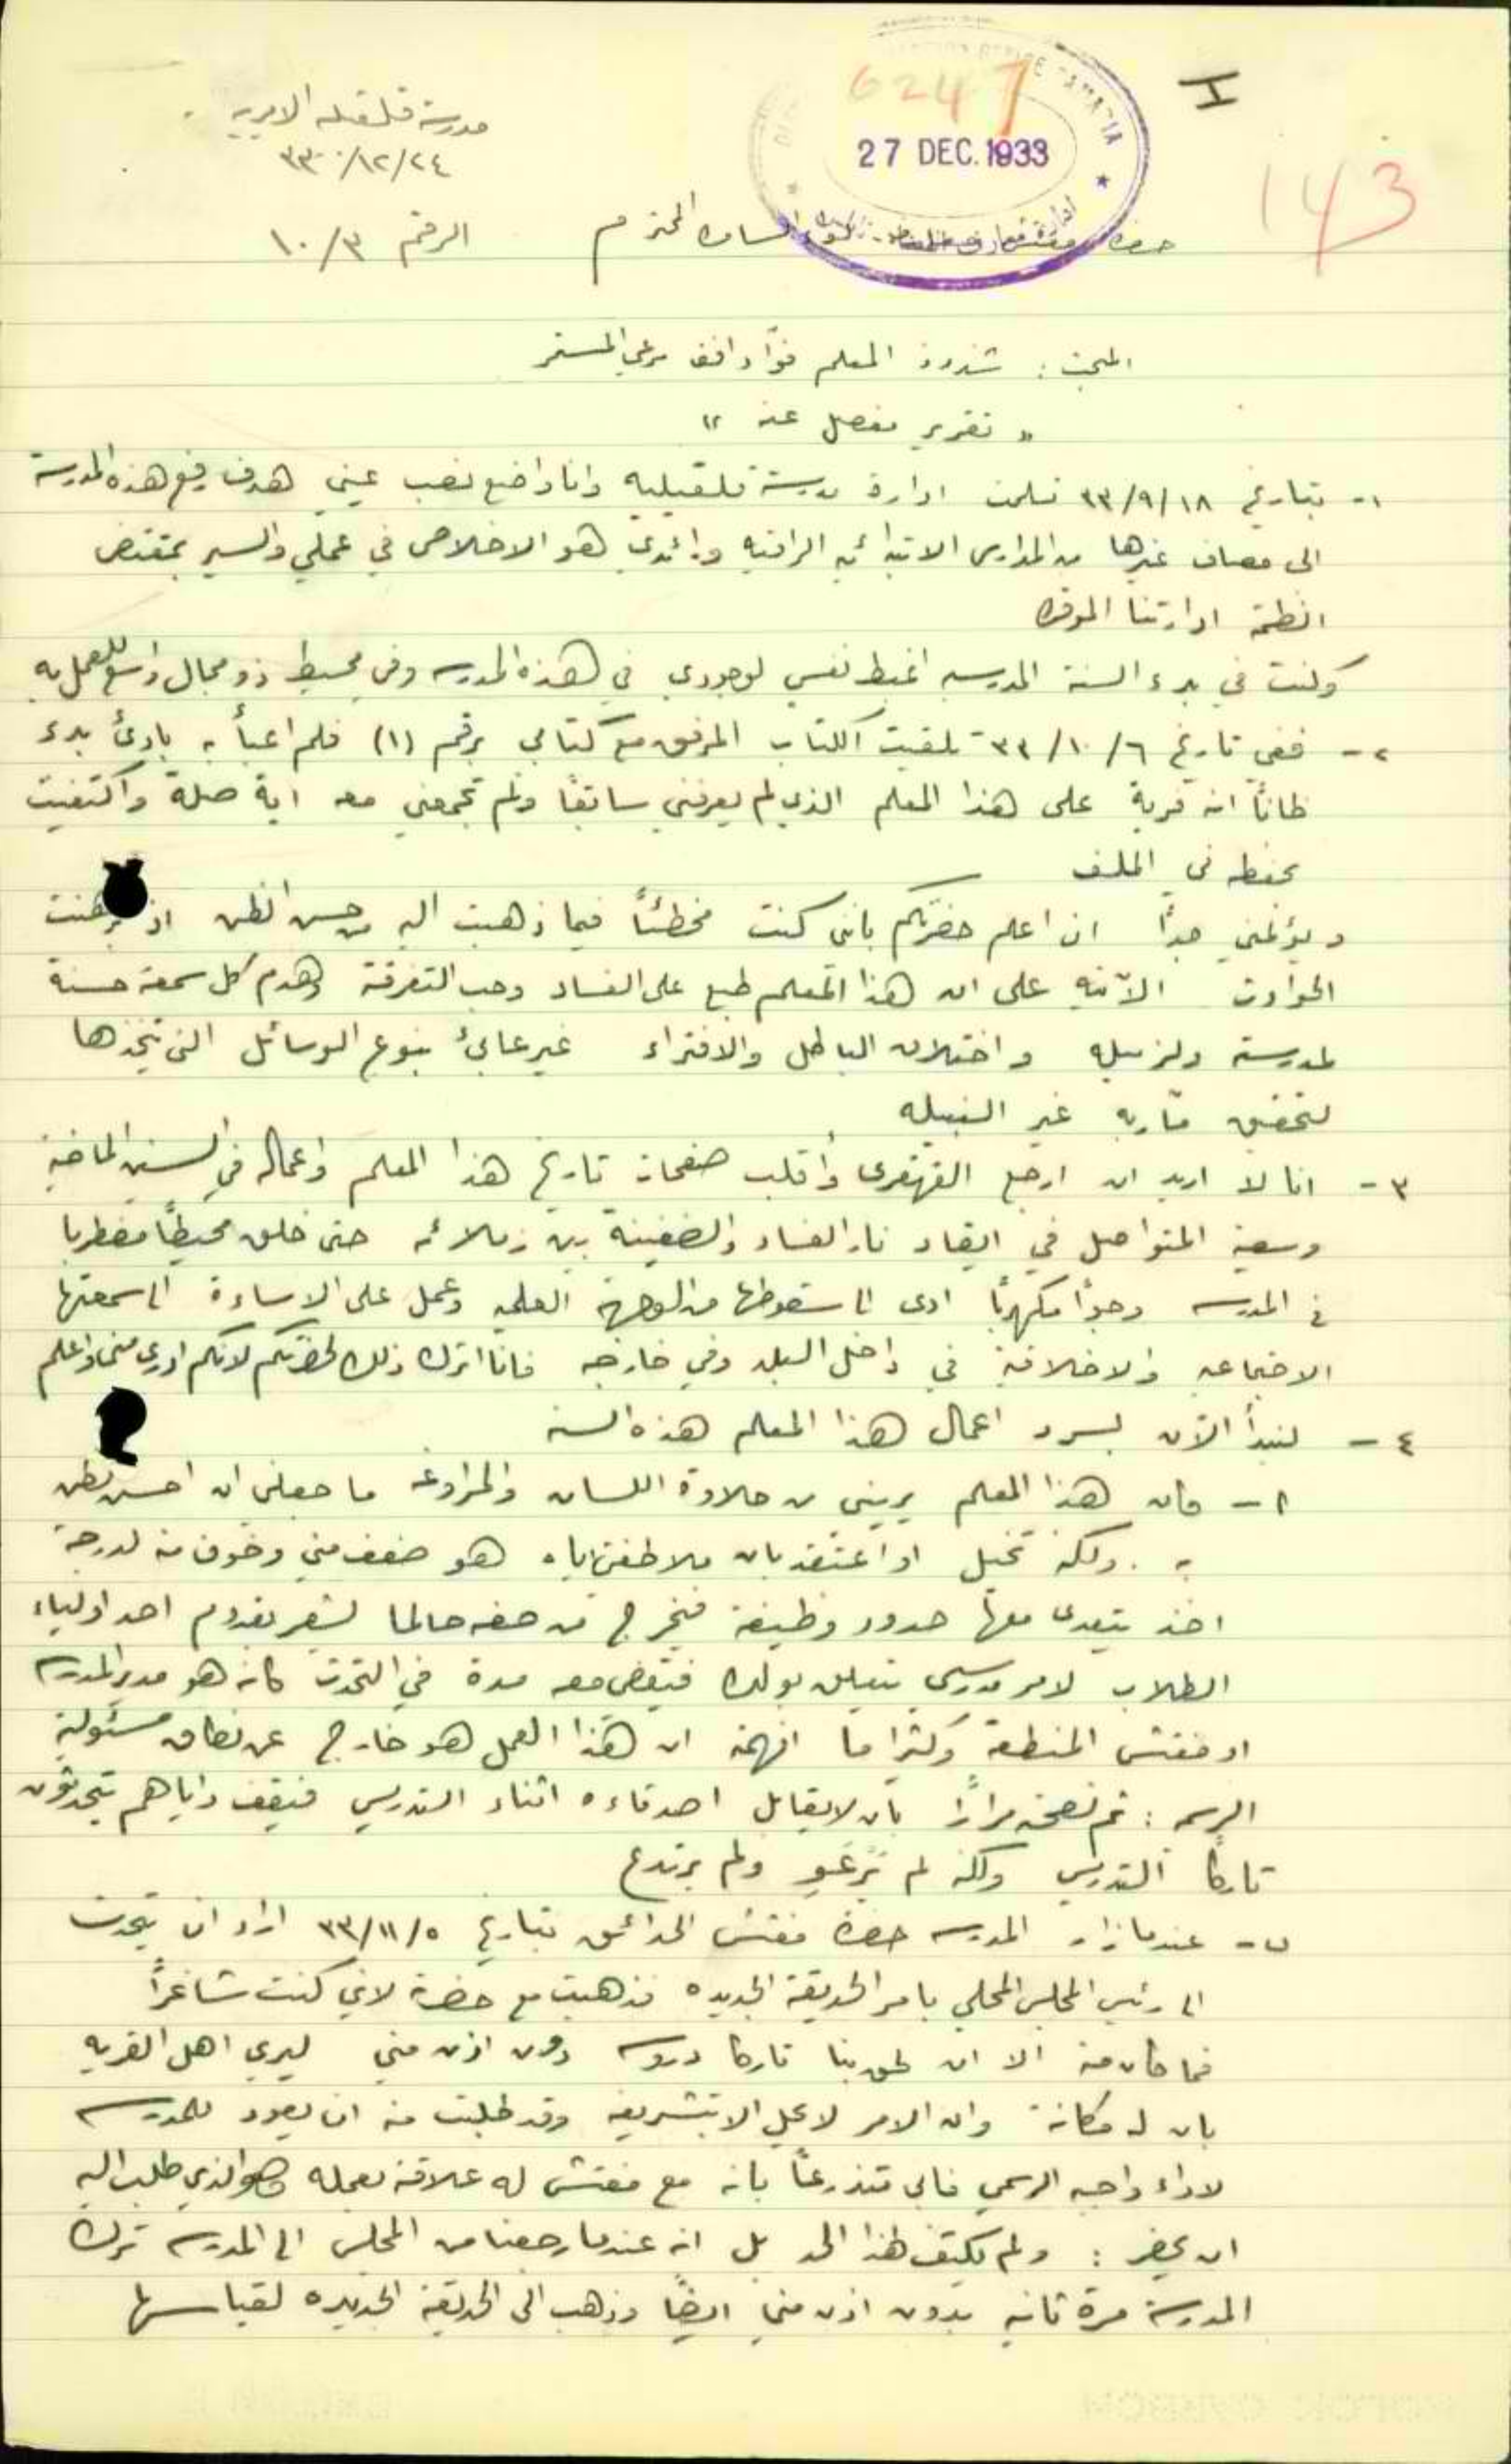 I
6247
27 DEC. 1933
143
مدرسة قلقيليه الاميريه
٢٤/١٢/٣٣
الرقم ١٠/٣
حضرة مفتش معارف لواء السامره المحترم
المبحث : شذوذ المعلم فؤاد مرعي المستمر
" تقرير مفصل عنه "
١- بتاريخ ١٨/٩/٣٣ تسلمت ادارة مدرسة قلقيليه وانا واضع نصب عيني هدف رفع هذه المدرسة
الى مصاف غيرها من المدارس الابتدائيه الراقيه ورائدي هو الاخلاص في عملي والسير بمقتضى
انظمة ادارتنا الموقره
وكنت في بدء السنة المدرسيه اغبط نفسي لوجودي في هذه المدرسه وفي محيط ذو مجال واسع للعمل به
٢- ففي تاريخ ٦/١٠/٣٣ تلقيت الكتاب المرفق مع كتابي برقم (١) فلم اعبأ به بادئ بدء
ظاناً انه فرية على هذا المعلم الذي لم يعرفني سابقاً ولم تجمعني معه اية صلة واكتفيت
بحفظه في الملف
ويؤلمني جداً ان اعلم حضرتكم بانني كنت مخطئاً فيما ذهبت اليه من حسن الظن اذ برهنت
الحوادث الآتيه على ان هذا المعلم طبع على الفساد وحب التفرقة وهدم كل سمعة حسنة
لمدرسته ولزميله واختلاق الباطل والافتراء غير عابئ بنوع الوسائل التي يتخذها
لتحقيق مآربه غير النبيله
٣- انا لا اريد ان ارجع القهقرى واقلب صفحات تاريخ هذا المعلم واعماله في السنين الماضية
وسعيه المتواصل في ايقاد نار الفساد والضغينة بين زملائه حتى خلق محيطاً مضطربا
في المدرسه وجواً مكهرباً ادى الى سقوطها من الوجهة العلميه وعمل على الاساءة الى سمعتها
الاجتماعيه والاخلاقية في داخل البلد وفي خارجه فانا اترك ذلك لحضرتكم لانكم ادرى مني واعلم
٤- لنبدأ الآن بسرد اعمال هذا المعلم هذه السنه
١- كان هذا المعلم يريني من حلاوة اللسان والمراوغه ما جعلني ان احسن الظن
به . ولكنه تخيل او اعتقد بان ملاطفتي اياه هو ضعف مني وخوف منه لدرجة
اخذ يتعدى معها حدود وظيفته فيخرج من صفه حالما يشعر بقدوم احد اولياء
الطلاب لامر مدرسي يتعلق بولده فيقضي معه مدة في التحدث كانه هو مدير المدرسه
او مفتش المنطقة وكثيرا ما افهمته ان هذا العمل هو خارج عن نطاق مسئوليته
الرسميه : ثم نصحته مراراً بان لا يقابل اصدقاءه اثناء التدريس فيقف واياهم يتحدثون
تاركاً التدريس ولكنه لم يرعو ولم يرتدع
ب- عندما زار المدرسه حضرة مفتش الحدائق بتاريخ ٥/١١/٣٣ اراد ان يتحدث
الى رئيس المجلس المحلي بامر الحديقة الجديده فذهبت مع حضرته لاني كنت شاغراً
فما كان منه الا ان لحق بنا تاركا دروسه دون اذن مني ليري اهل القريه
بان له مكانة وان الامر لا يحل الا بتشريفه وقد طلبت منه ان يعود للمدرسه
لاداء واجبه الرسمي فابى متذرعاً بانه مع مفتش له علاقة بعمله وهو الذي طلب اليه
ان يحضر : ولم يكتف لهذا الحد بل انه عندما رجعنا من المجلس الى المدرسه ترك
المدرسة مرة ثانيه بدون اذن مني ايضاً وذهب الى الحديقة الجديده لقياسها